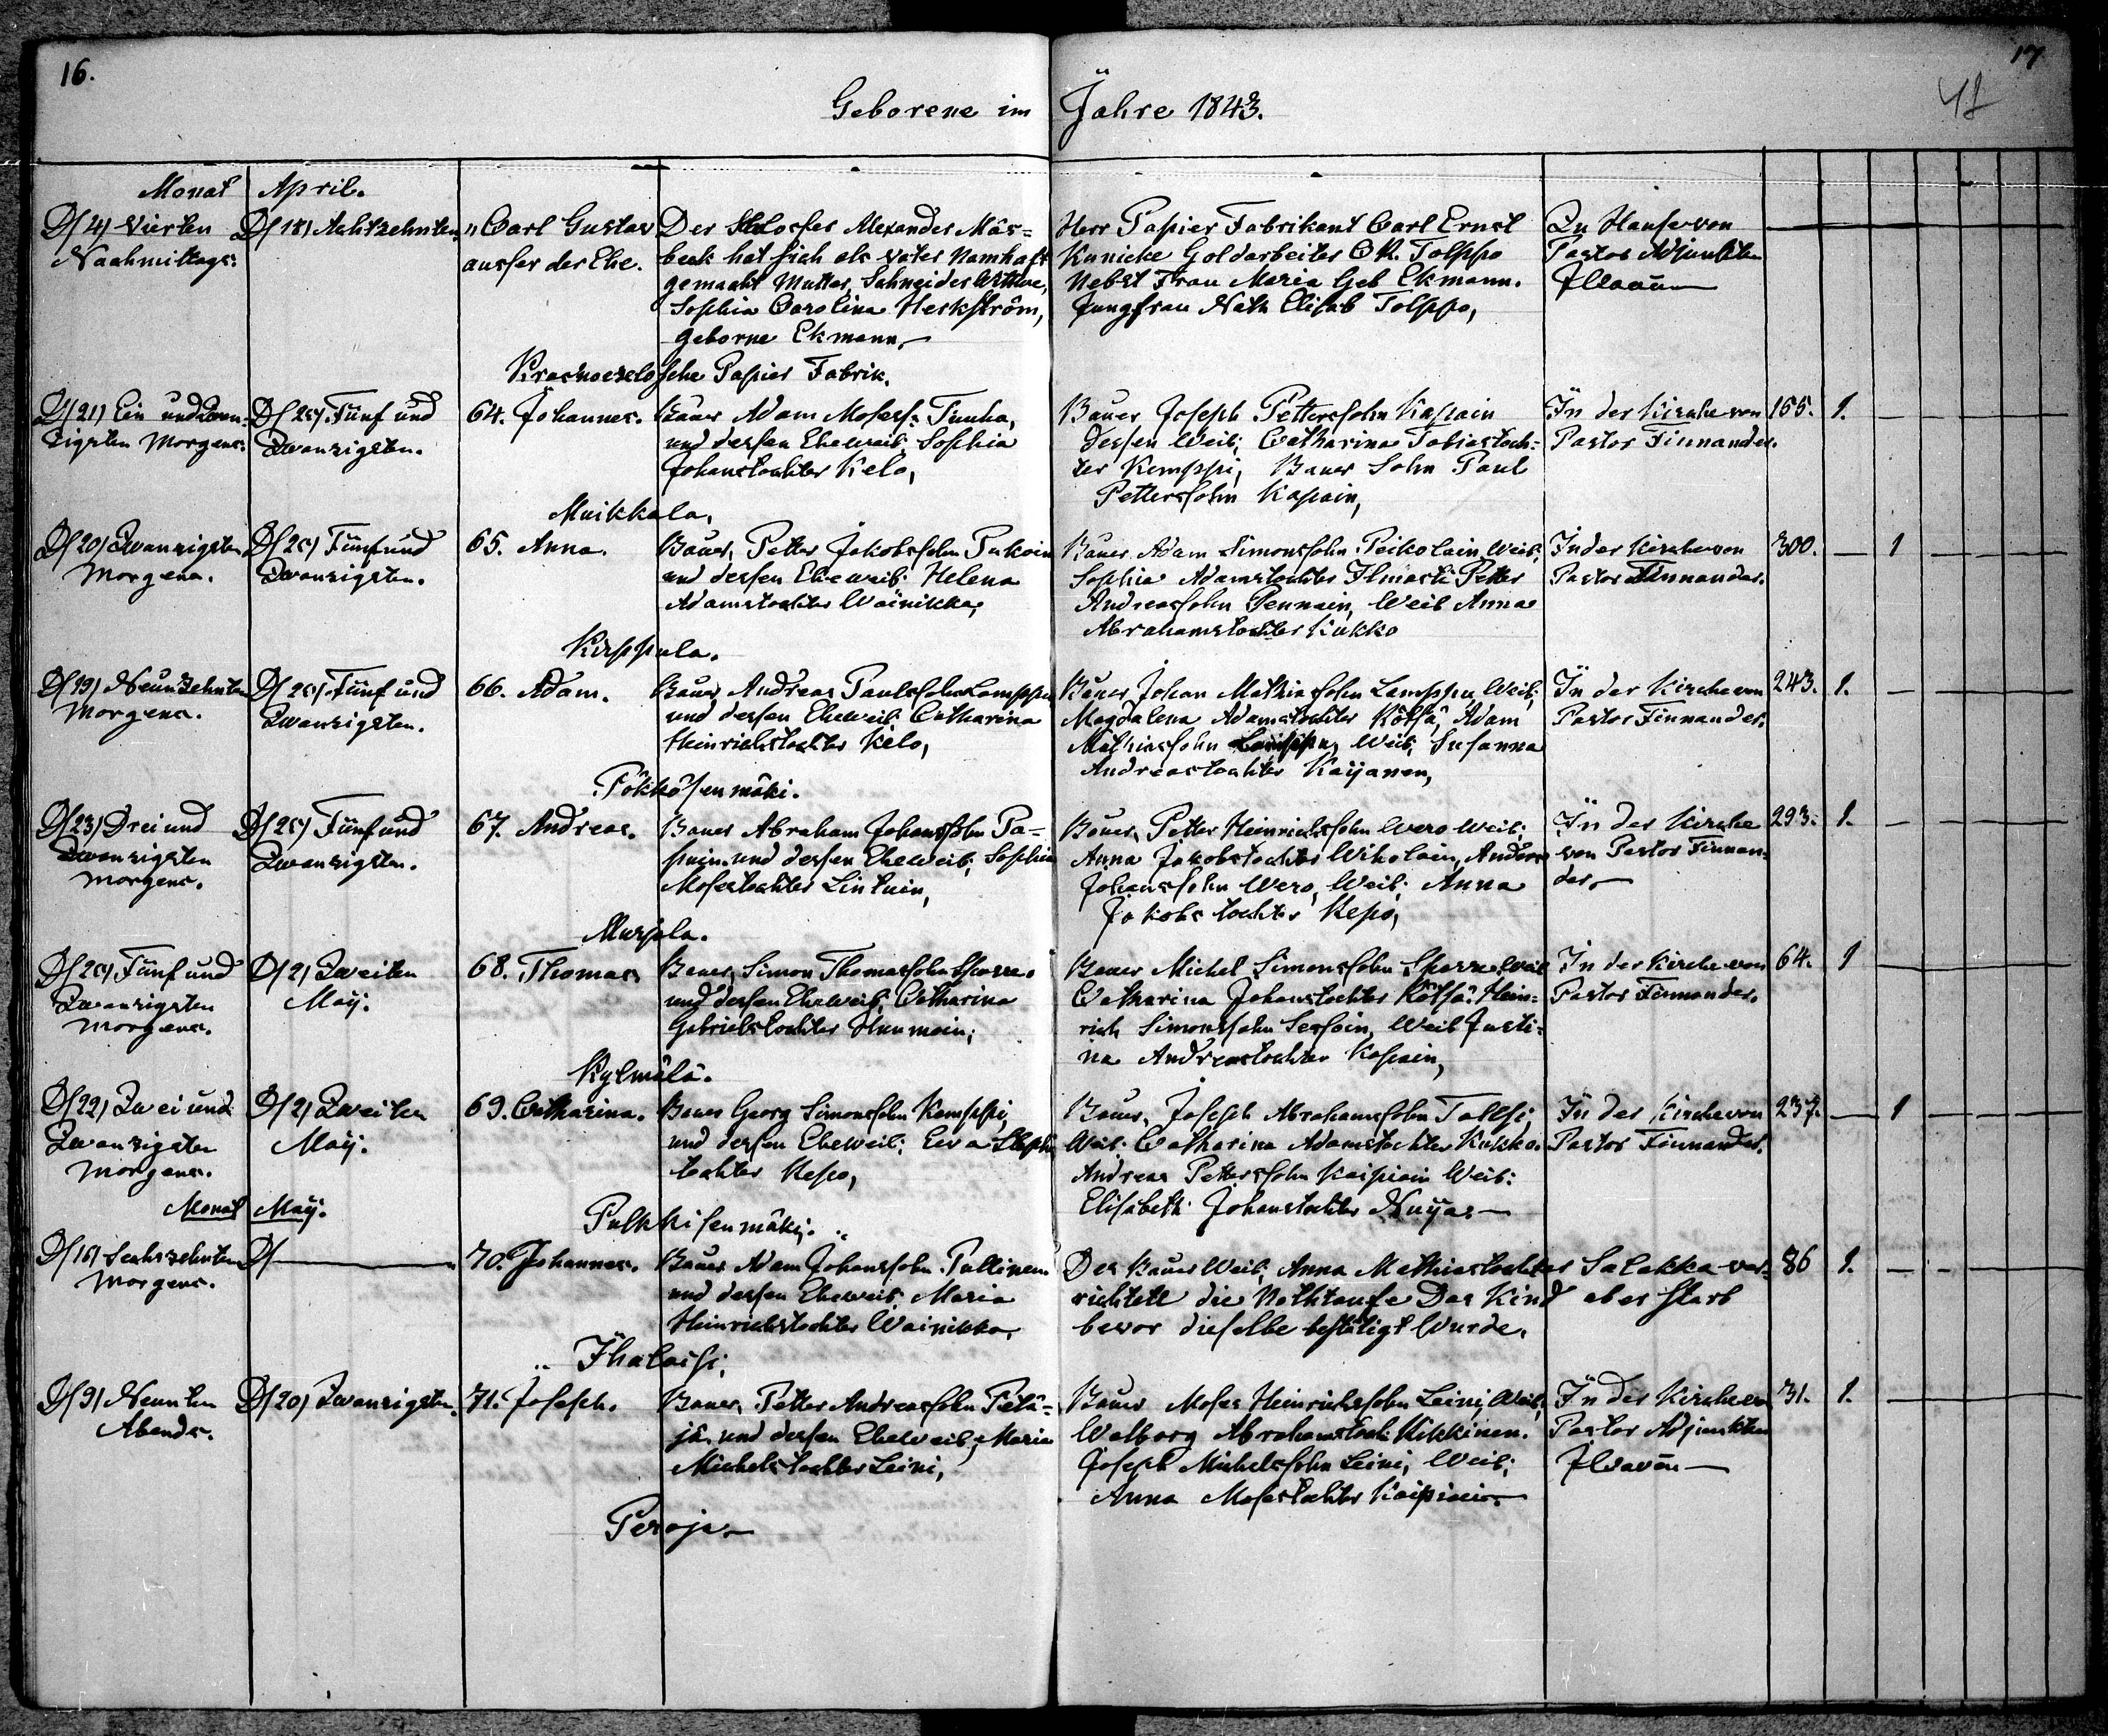 16.
17
Geborene im Jahre 1843.
Monat April.
D/4/ Vierten
Nachmittags.
D/18/ Achtzehnten.
„ Carl Gustav
ausser der Ehe.
Der Schlosser Alexander Mäs=
beck hat sich als Vater Namhaft
gemacht Mutter, Schneider Wittwe,
Sophia Carolina Herkström,
geborne Ekmann.
Herr Papier Fabrikant Carl Ernst
Kunicke Goldarbeiter Tolppo
Nebst Frau Maria Geb Ekmann.
Jungfrau Nath Elisab Tolppo,
Zu Hause von
Pastor Adjunkten
Krasnoeselo sche Papier Fabrik.
D/21/ Ein und Zwan=
zigsten Morgens.
D/25/ Fünf und
Zwanzigsten.
64. Johannes.
Bauer Adam Mosess:
und dessen Eheweib; Sophia
Johanstochter Kelo,
Bauer Joseph Petterssohn Kapain
dessen Weib; Catharina Tobiastoch=
ter Kemppi, Bauer Sohn Paul
Petterssohn Kapain,
In der Kirche von
Pastor Finnander.
155. 1.
Muikkala,
D/20/ Zwanzigsten
Morgens.
D/25/ Fünf und
Zwanzigsten.
65. Anna.
Bauer, Petter Jakobssohn Pukoin
und dessen Eheweib; Helena
Adamstochter Wäinikka,
Bauer Adam Simonssohn Peikolain, Weib;
Sophia Adamstochter Ilmasti Petter
Andreassohn Pennain, Weib Anna
Abrahamstochter Kukko
In der Kirche von
Pastor Finnander.
300. 1
Kirppula.
D/19/ Neunzehnten
Morgens.
D/25/ Fünf und
Zwanzigsten.
66. Adam.
Bauer Andreas Paulssohn Lamppu
und dessen Eheweib; Catharina
Heinrichstochter Kelo,
Bauer Johan Mathiassohn Lamppu, Weib;
Magdalena Adamstochter Kötsä, Adam
Mathiassohn Lamppu, Weib; Susanna
Andreastochter Kaijanen,
In der Kirche von
Pastor Finnander.
243. 1.
Pökkösenmäki.
D/23/ Drei und
Zwanzigsten
Morgens.
D/25/ Fünf und
Zwanzigsten.
67. Andreas.
Bauer Abraham Johanssohn Pa=
puin und dessen Eheweib; Sophia
Mosestochter Lintuin,
Bauer, Petter Heinrichssohn Wero Weib;
Anna Jakobstochter Wikolain, Andreas
Johanssohn Wero, Weib; Anna
Jakobstochter Repo,
In der Kirche
von Pastor Finnan=
der.
293. 1.
Murjela.
D/25/ Fünf und
Zwanzigsten
Morgens.
D/2/ Zweiten
Maij.
68. Thomas.
Bauer, Simon Thomassohn Sparre
und dessen Eheweib; Catharina
Gabrielstochter
Bauer Michel Simonssohn Sparre, Weib
Catharina Johanstochter Kötsä. Hein=
rich Simonssohn Weib Justi=
na Andreastochter Kapain,
In der Kirche von
Pastor Finnander.
64. 1
Kylmälä.
D/22/ Zwei und
Zwanzigsten
Morgens.
D/2/ Zweiten
Maij.
69. Catharina.
Bauer Georg Simonssohn Kemppi,
und dessen Eheweib; Eva Steph
tochter Repo,
Bauer, Joseph Abrahamssohn
Weib. Catharina Adamstochter Kukko.
Andreas Petterssohn Kaipiain Weib:
Elisabeth Johanstochter Nuija.
In der Kirche von
Pastor Finnander.
237. 1
Pulkkisenmäki.
Monat Maij.
D/16/ Sechszehnten
Morgens.
D/
70. Johannes.
Bauer Adam Johanssohn Pullinen
und dessen Eheweib; Maria
Heinrichstochter Wainikka,
Der Bauer Weib; Anna Mathiastochter Salakka ver=
richtete die Nothtaufe Das Kind aber starb
bevor dieselbe bestätigt wurde.
86 1.
Ihalaisi,
D/9/ Neunten
Abends.
D/20/ Zwanzigsten.
71. Joseph.
Bauer, Petter Andreassohn Pelä=
jä. und dessen Eheweib; Maria
Michelstochter Leini,
Bauer Moses Heinrichssohn Leini, Weib;
Walborg Abrahamstoch: Kikkinen.
Joseph Michelssohn Leini, Weib;
Anna Mosestochter Kaipiain.
In der Kirche von
Pastor Adjunkten
31. 1.
Peroja.